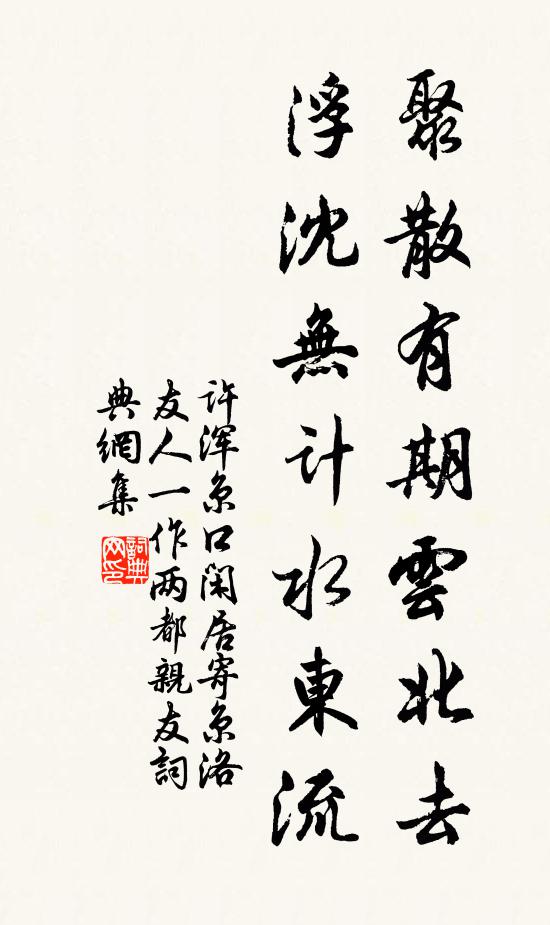 聚散有期雲北去
浮沈無計水東流
许浑京口闲居寄京洛
友人一作两都親友詞
典網集
詞典网印